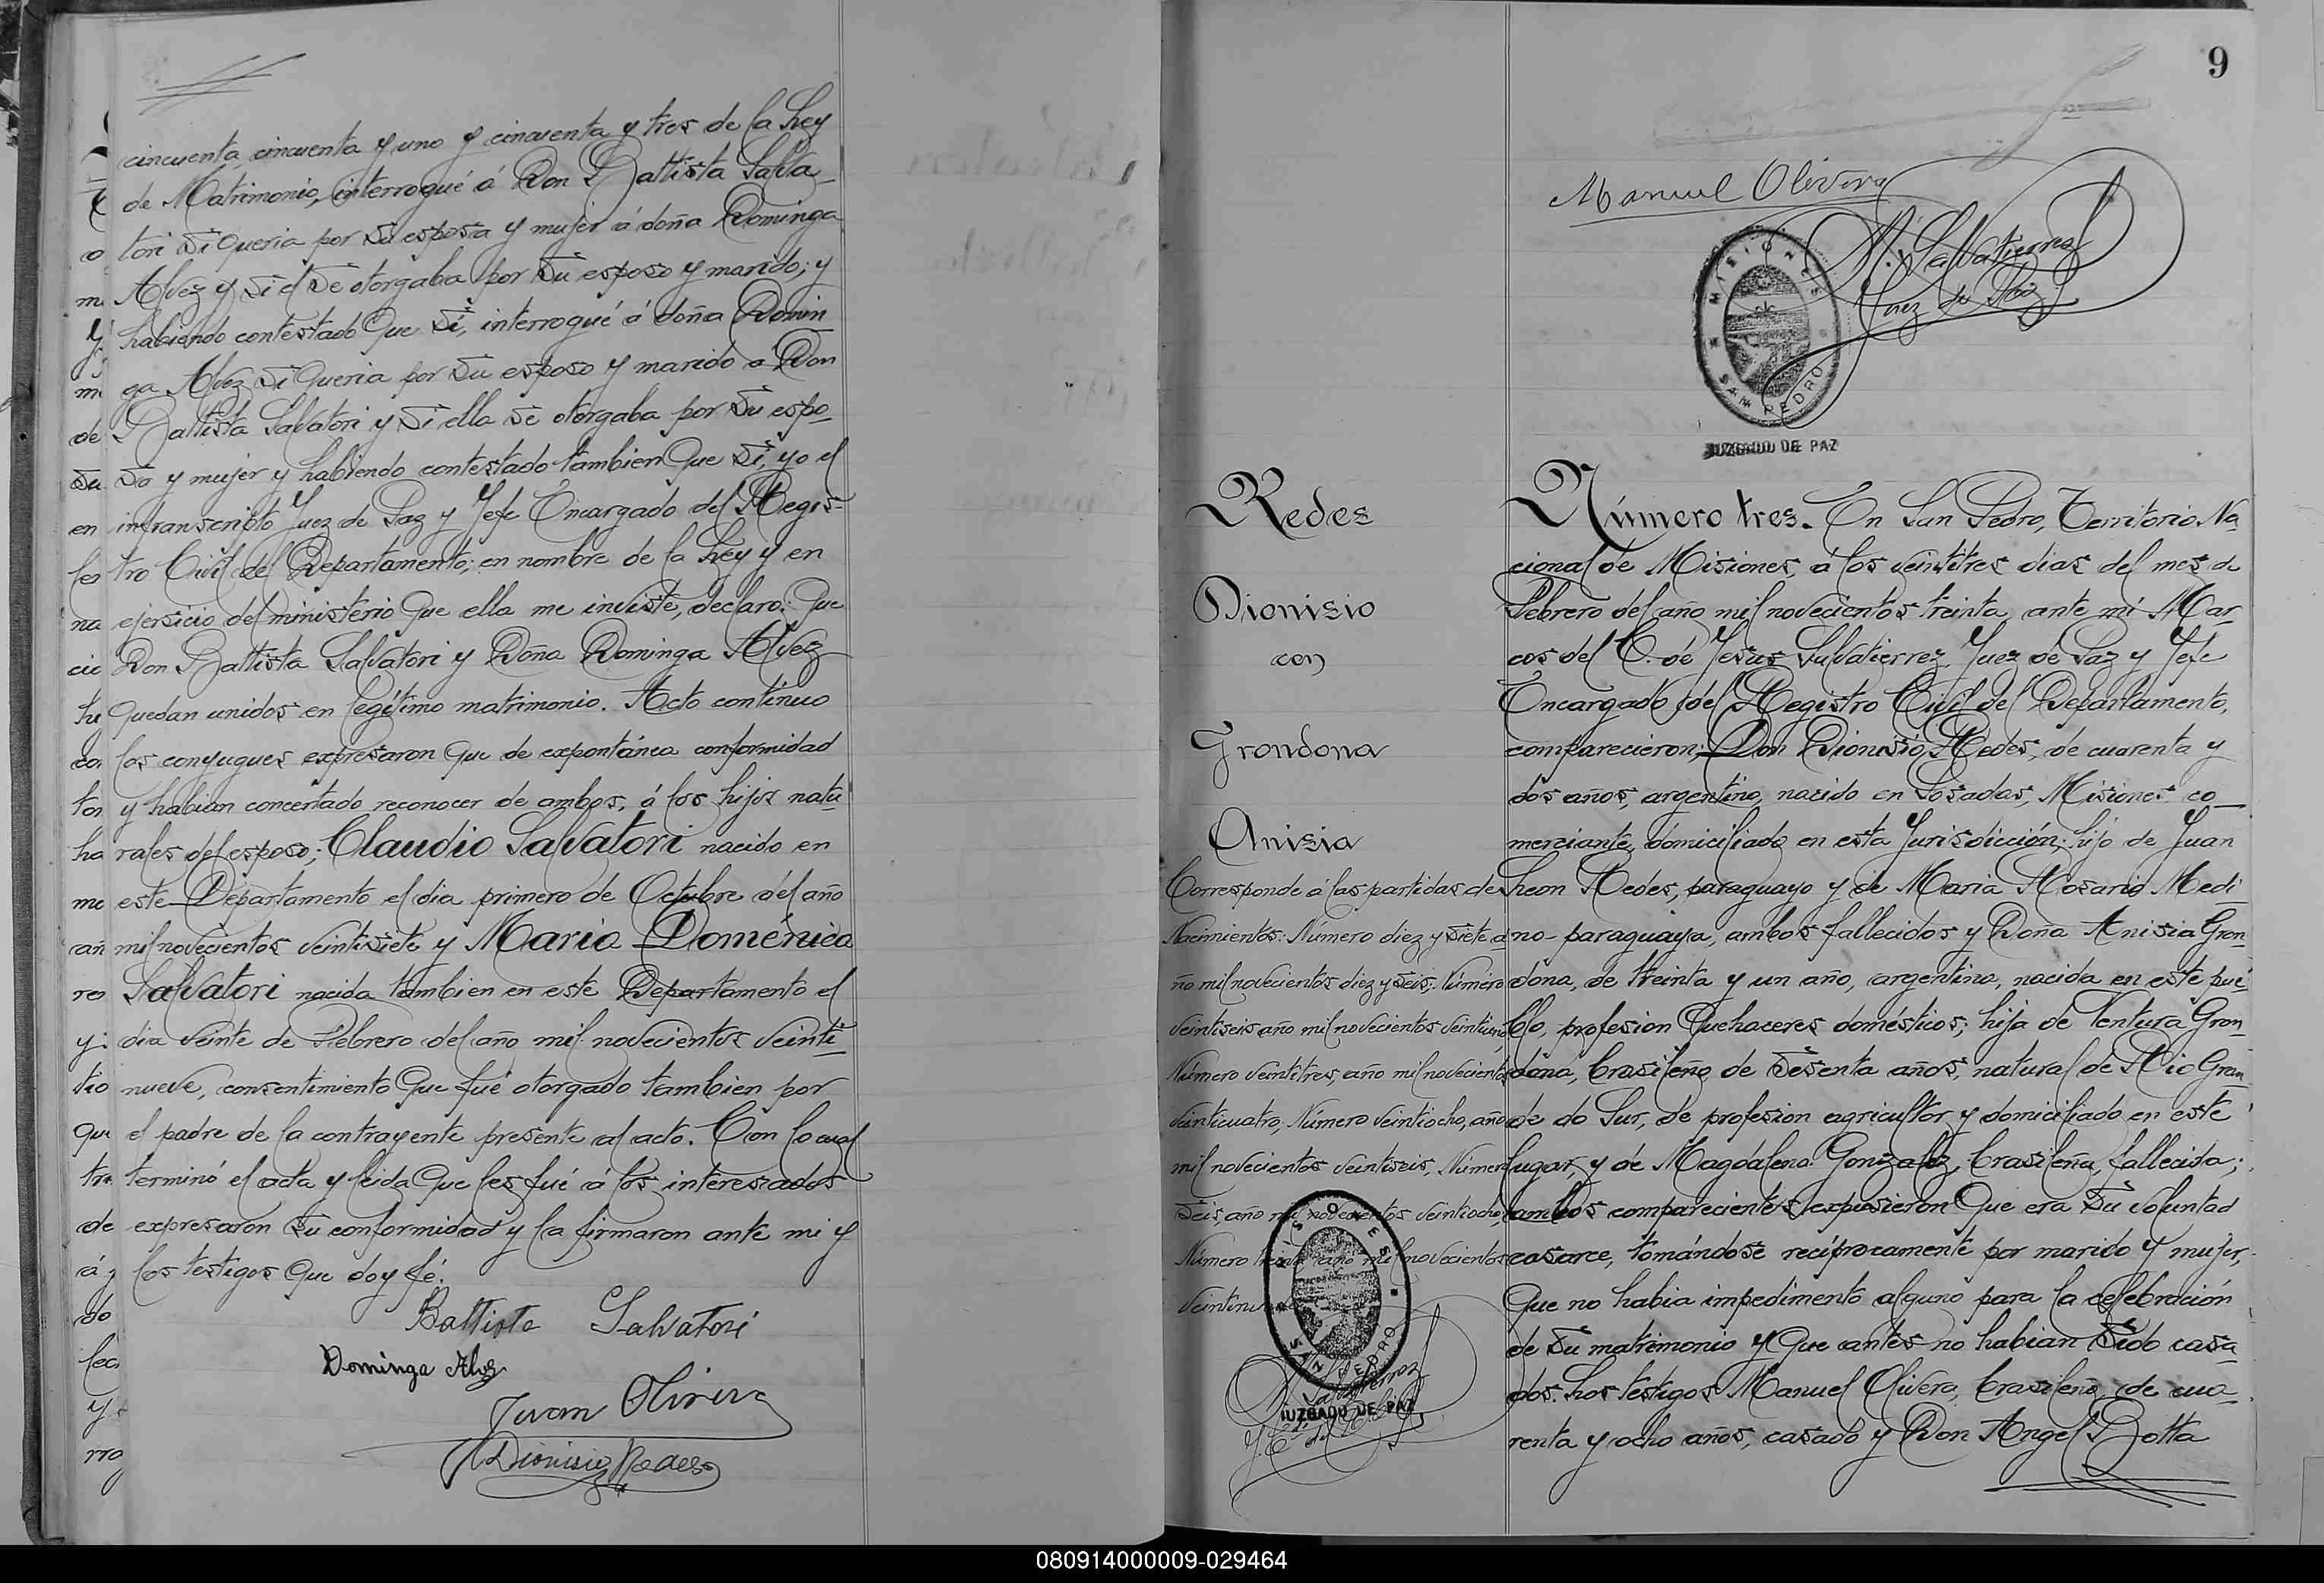 cincuenta, cincuenta y uno y cincuenta y tres de la Ley
de Matrimonio, interrogué á Don Battista Salva-
tori si queria por su esposa y mujer á doña Dominga
Alvez y si el se otorgaba por su esposo y marido; y
habiendo contestado que sí, interrogué á doña Domin
ga Alvez si queria por su esposo y marido á Don
Battista Salvatori y si ella se otorgaba por su espo-
so y mujer y habiendo contestado tambien que sí, yo el
infranscripto Juez de Paz y Jefe Encargado del Regis-
tro Civil del Departamento; en nombre de la Ley y en
ejersicio del ministerio que ella me inviste, declaro: Que
Don Battista Salvatori y Doña Dominga Alvez
quedan unidos en legítimo matrimonio. Acto contínuo
los conyugues expresaron que de expontánea conformidad
y habian concertado reconocer de ambos, á los hijos natu
rales del esposo; Claudio Salvatori nacido en
este Departamento el dia primero de Octubre del año
mil novecientos veintisiete y Maria Doménica
Salvatori nacida tambien en este Departamento el
dia veinte de Febrero del año mil novecientos veinti-
nueve, consentimiento que fué otorgado tambien por
el padre de la contrayente presente al acto. Con lo cual
terminó el acta y leida que les fué á los interesados
expresaron su conformidad y la firmaron ante mi y
los testigos que doy fé.
Battista Salvatori
Dominga Alvz
Juan Olivera
Dionisio Redes
9
Manuel Olivera
M. Salvatierrez
Juez de Paz
MISIONES
SAN PEDRO
JUZGADO DE PAZ
Redes
Dionisio
con
Grondona
Anisia
Corresponde á las partidas de
Nacimientos: Número diez y siete a
ño mil novecientos diez y seis; Número
veintiseis año mil novecientos veintiuno
Número veintitres, año mil novecientos
veinticuatro, Número veintiocho, año
mil novecientos veintiseis, Número
seis, año mil novecientos veintiocho,
Número treinta año mil novecientos
MISIONES
SAN PEDRO
JUZGADO DE PAZ
Número tres. En San Pedro, Territorio Na
cional de Misiones, á los veintitres dias del mes de
Febrero del año mil novecientos treinta, ante mí Mar-
cos del C. de Jesus Salvatierrez Juez de Paz y Jefe
Encargado del Registro Civil del Departamento,
comparecieron; Don Dionisio Redes, de cuarenta y
dos años, argentino, nacido en Posadas, Misiones co-
merciante, domiciliado en esta Jurisdicción; hijo de Juan
Leon Redes, paraguayo y de Maria Rosario Medi
no- paraguaya, ambos fallecidos y Doña Anisia Gron
dona, de treinta y un año, argentina, nacida en este pue-
blo, profesion Quehaceres domésticos; hija de Ventura Gron
dona, brasileño de sesenta años, natural de Rio Gran-
de do Sur, de profesion agricultor y domiciliado en este
lugar, y de Magdalena Gonzalez, brasileña, fallecida;
ambos comparecientes expusieron que era su voluntad
casarce, tomándose recíprocamente por marido y mujer,
que no habia impedimento alguno para la celebración
de su matrimonio y que antes no habian sido casa-
dos. Los testigos Manuel Olivera, brasileño, de cua-
renta y ocho años, casado y Don Angel Botta
080914000009-029464